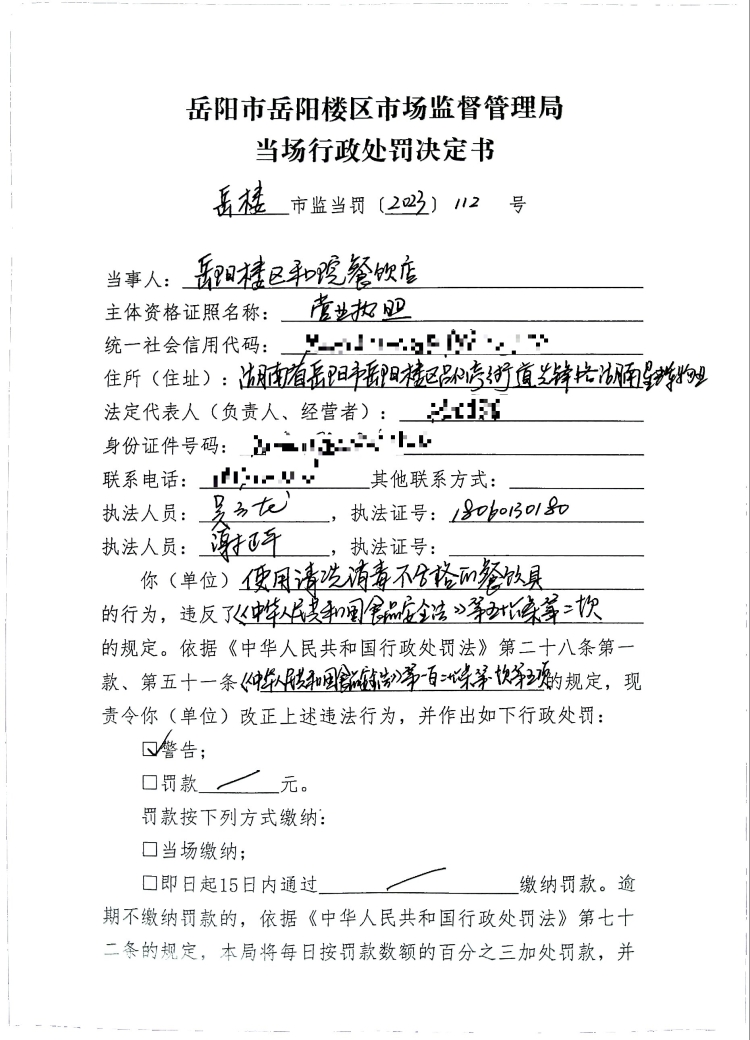 岳阳市岳阳楼区市场监督管理局
当场行政处罚决定书
岳楼 市监当罚〔2023〕112 号
当事人：岳阳楼区和院餐饮店
主体资格证照名称：营业执照
统一社会信用代码：
住所（住址）：湖南省岳阳市岳阳楼区吕仙亭街道先锋路湖南
法定代表人（负责人、经营者）：
身份证件号码：
联系电话： 其他联系方式：
执法人员：吴 ，执法证号：18060130180
执法人员：谢正平 ，执法证号：
你（单位）使用清洗消毒不合格的餐饮具
的行为，违反了《中华人民共和国食品安全法》第五十六条第二款
的规定。依据《中华人民共和国行政处罚法》第二十八条第一
款、第五十一条《中华人民共和国食品安全法》第一百二十六条第一款第五项的规定，现
责令你（单位）改正上述违法行为，并作出如下行政处罚：
☑警告；
□罚款 元。
罚款按下列方式缴纳：
□当场缴纳；
□即日起15日内通过 缴纳罚款。逾
期不缴纳罚款的，依据《中华人民共和国行政处罚法》第七十
二条的规定，本局将每日按罚款数额的百分之三加处罚款，并